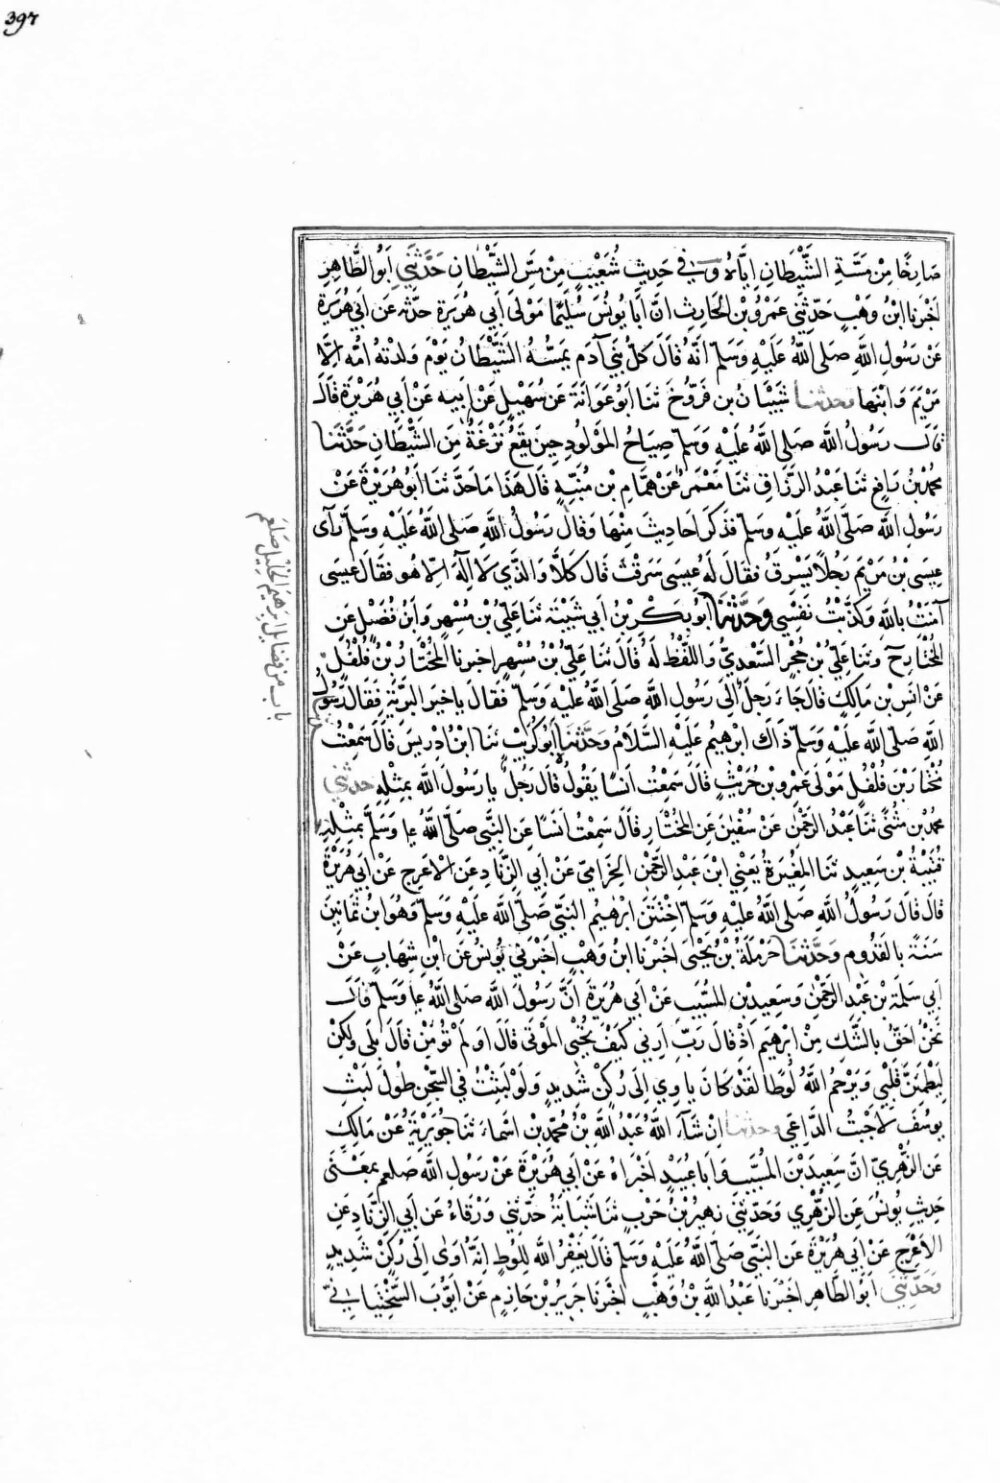 397
صَارِخًا مِنْ مَسَّةِ الشَّيْطَانِ اِيَّاهُ وَفِي حَدِيثِ شُعَيْبٍ مِنْ مَسِّ الشَّيْطَانِ حَدَّثَنِي اَبُو الطَّاهِرِ
اَخْبَرَنَا ابْنُ وَهْبٍ حَدَّثَنِي عَمْرُو بْنُ الْحَارِثِ اَنَّ اَبَا يُونُسَ سُلَيْمًا مَوْلَى اَبِي هُرَيْرَةَ حَدَّثَهُ عَنْ اَبِي هُرَيْرَةَ
عَنْ رَسُولِ اللّٰهِ صَلَّى اللّٰهُ عَلَيْهِ وَسَلَّمَ اَنَّهُ قَالَ كُلُّ بَنِي آدَمَ يَمَسُّهُ الشَّيْطَانُ يَوْمَ وَلَدَتْهُ اُمُّهُ اِلَّا
مَرْيَمَ وَابْنَهَا وَحَدَّثَنَا شَيْبَانُ بْنُ فَرُّوخَ ثَنَا اَبُو عَوَانَةَ عَنْ سُهَيْلٍ عَنْ اَبِيهِ عَنْ اَبِي هُرَيْرَةَ قَالَ
قَالَ رَسُولُ اللّٰهِ صَلَّى اللّٰهُ عَلَيْهِ وَسَلَّمَ صِيَاحُ الْمَوْلُودِ حِينَ يَقَعُ نَزْغَةٌ مِنَ الشَّيْطَانِ حَدَّثَنَا
مُحَمَّدُ بْنُ رَافِعٍ ثَنَا عَبْدُ الرَّزَّاقِ ثَنَا مَعْمَرٌ عَنْ هَمَّامِ بْنِ مُنَبِّهٍ قَالَ هَذَا مَا حَدَّثَنَا اَبُو هُرَيْرَةَ عَنْ
رَسُولِ اللّٰهِ صَلَّى اللّٰهُ عَلَيْهِ وَسَلَّمَ فَذَكَرَ اَحَادِيثَ مِنْهَا وَقَالَ رَسُولُ اللّٰهِ صَلَّى اللّٰهُ عَلَيْهِ وَسَلَّمَ رَآى
عِيسَى بْنُ مَرْيَمَ رَجُلًا يَسْرِقُ فَقَالَ لَهُ عِيسَى سَرَقْتَ قَالَ كَلَّا وَالَّذِي لَا اِلٰهَ اِلَّا هُوَ فَقَالَ عِيسَى
آمَنْتُ بِاللّٰهِ وَكَذَّبْتُ نَفْسِي وَحَدَّثَنَا اَبُو بَكْرِ بْنُ اَبِي شَيْبَةَ ثَنَا عَلِيُّ بْنُ مُسْهِرٍ وَابْنُ فُضَيْلٍ عَنِ
الْمُخْتَارِ ح وَثَنَا عَلِيُّ بْنُ حُجْرٍ السَّعْدِيُّ وَاللَّفْظُ لَهُ قَالَ ثَنَا عَلِيُّ بْنُ مُسْهِرٍ اَخْبَرَنَا الْمُخْتَارُ بْنُ فُلْفُلٍ
عَنْ اَنَسِ بْنِ مَالِكٍ قَالَ جَاءَ رَجُلٌ اِلَى رَسُولِ اللّٰهِ صَلَّى اللّٰهُ عَلَيْهِ وَسَلَّمَ فَقَالَ يَا خَيْرَ الْبَرِيَّةِ فَقَالَ رَسُولُ
اللّٰهِ صَلَّى اللّٰهُ عَلَيْهِ وَسَلَّمَ ذَاكَ اِبْرَهِيمُ عَلَيْهِ السَّلَامُ وَحَدَّثَنَا اَبُو كُرَيْبٍ ثَنَا ابْنُ اِدْرِيسَ قَالَ سَمِعْتُ
مُخْتَارَ بْنَ فُلْفُلٍ مَوْلَى عَمْرِو بْنِ حُرَيْثٍ قَالَ سَمِعْتُ اَنَسًا يَقُولُ قَالَ رَجُلٌ يَا رَسُولَ اللّٰهِ بِمِثْلِهِ حَدَّثَنِي
مُحَمَّدُ بْنُ مُثَنًّى ثَنَا عَبْدُ الرَّحْمٰنِ عَنْ سُفْيٰنَ عَنِ الْمُخْتَارِ قَالَ سَمِعْتُ اَنَسًا عَنِ النَّبِيِّ صَلَّى اللّٰهُ ع‍ا وَسَلَّمَ بِمِثْلِهِ
قُتَيْبَةُ بْنُ سَعِيدٍ ثَنَا الْمُغِيرَةُ يَعْنِي ابْنَ عَبْدِ الرَّحْمٰنِ الْحِزَامِيَّ عَنْ اَبِي الزِّنَادِ عَنِ الْاَعْرَجِ عَنْ اَبِي هُرَيْرَةَ
قَالَ قَالَ رَسُولُ اللّٰهِ صَلَّى اللّٰهُ عَلَيْهِ وَسَلَّمَ اخْتَتَنَ اِبْرٰهِيمُ النَّبِيُّ صَلَّى اللّٰهُ عَلَيْهِ وَسَلَّمَ وَهُوَ ابْنُ ثَمَانِينَ
سَنَةً بِالْقَدُومِ وَحَدَّثَنَا حَرْمَلَةُ بْنُ يَحْيَى اَخْبَرَنَا ابْنُ وَهْبٍ اَخْبَرَنِي يُونُسُ عَنِ ابْنِ شِهَابٍ عَنْ
اَبِي سَلَمَةَ بْنِ عَبْدِ الرَّحْمٰنِ وَسَعِيدِ بْنِ الْمُسَيَّبِ عَنْ اَبِي هُرَيْرَةَ اَنَّ رَسُولَ اللّٰهِ صَلَّى اللّٰهُ ع‍ا وَسَلَّمَ قَالَ
نَحْنُ اَحَقُّ بِالشَّكِّ مِنْ اِبْرٰهِيمَ اِذْ قَالَ رَبِّ اَرِنِي كَيْفَ تُحْيِي الْمَوْتَى قَالَ اَوَلَمْ تُؤْمِنْ قَالَ بَلَى وَلٰكِنْ
لِيَطْمَئِنَّ قَلْبِي وَيَرْحَمُ اللّٰهُ لُوطًا لَقَدْ كَانَ يَاوِي اِلَى رُكْنٍ شَدِيدٍ وَلَوْ لَبِثْتُ فِي السِّجْنِ طُولَ لَبْثِ
يُوسُفَ لَاَجَبْتُ الدَّاعِيَ وَحَدَّثَنَا اِنْ شَاءَ اللّٰهُ عَبْدُ اللّٰهِ بْنُ مُحَمَّدِ بْنِ اَسْمَاءَ ثَنَا جُوَيْرِيَةُ عَنْ مَالِكٍ
عَنِ الزُّهْرِيِّ اَنَّ سَعِيدَ بْنَ الْمُسَيَّبِ وَاَبَا عُبَيْدٍ اَخْبَرَاهُ عَنْ اَبِي هُرَيْرَةَ عَنْ رَسُولِ اللّٰهِ صلعم بِمَعْنَى
حَدِيثِ يُونُسَ عَنِ الزُّهْرِيِّ وَحَدَّثَنِي زُهَيْرُ بْنُ حَرْبٍ ثَنَا شَبَابَةُ حَدَّثَنِي وَرْقَاءُ عَنْ اَبِي الزِّنَادِ عَنِ
الْاَعْرَجِ عَنْ اَبِي هُرَيْرَةَ عَنِ النَّبِيِّ صَلَّى اللّٰهُ عَلَيْهِ وَسَلَّمَ قَالَ يَغْفِرُ اللّٰهُ لِلُوطٍ اِنَّهُ اَوَى اِلَى رُكْنٍ شَدِيدٍ
وَحَدَّثَنِي اَبُو الطَّاهِرِ اَخْبَرَنَا عَبْدُ اللّٰهِ بْنُ وَهْبٍ اَخْبَرَنَا جَرِيرُ بْنُ حَازِمٍ عَنْ اَيُّوبَ السَّخْتِيَانِيِّ
باب من فضايل ابرهيم الخليل صلعم